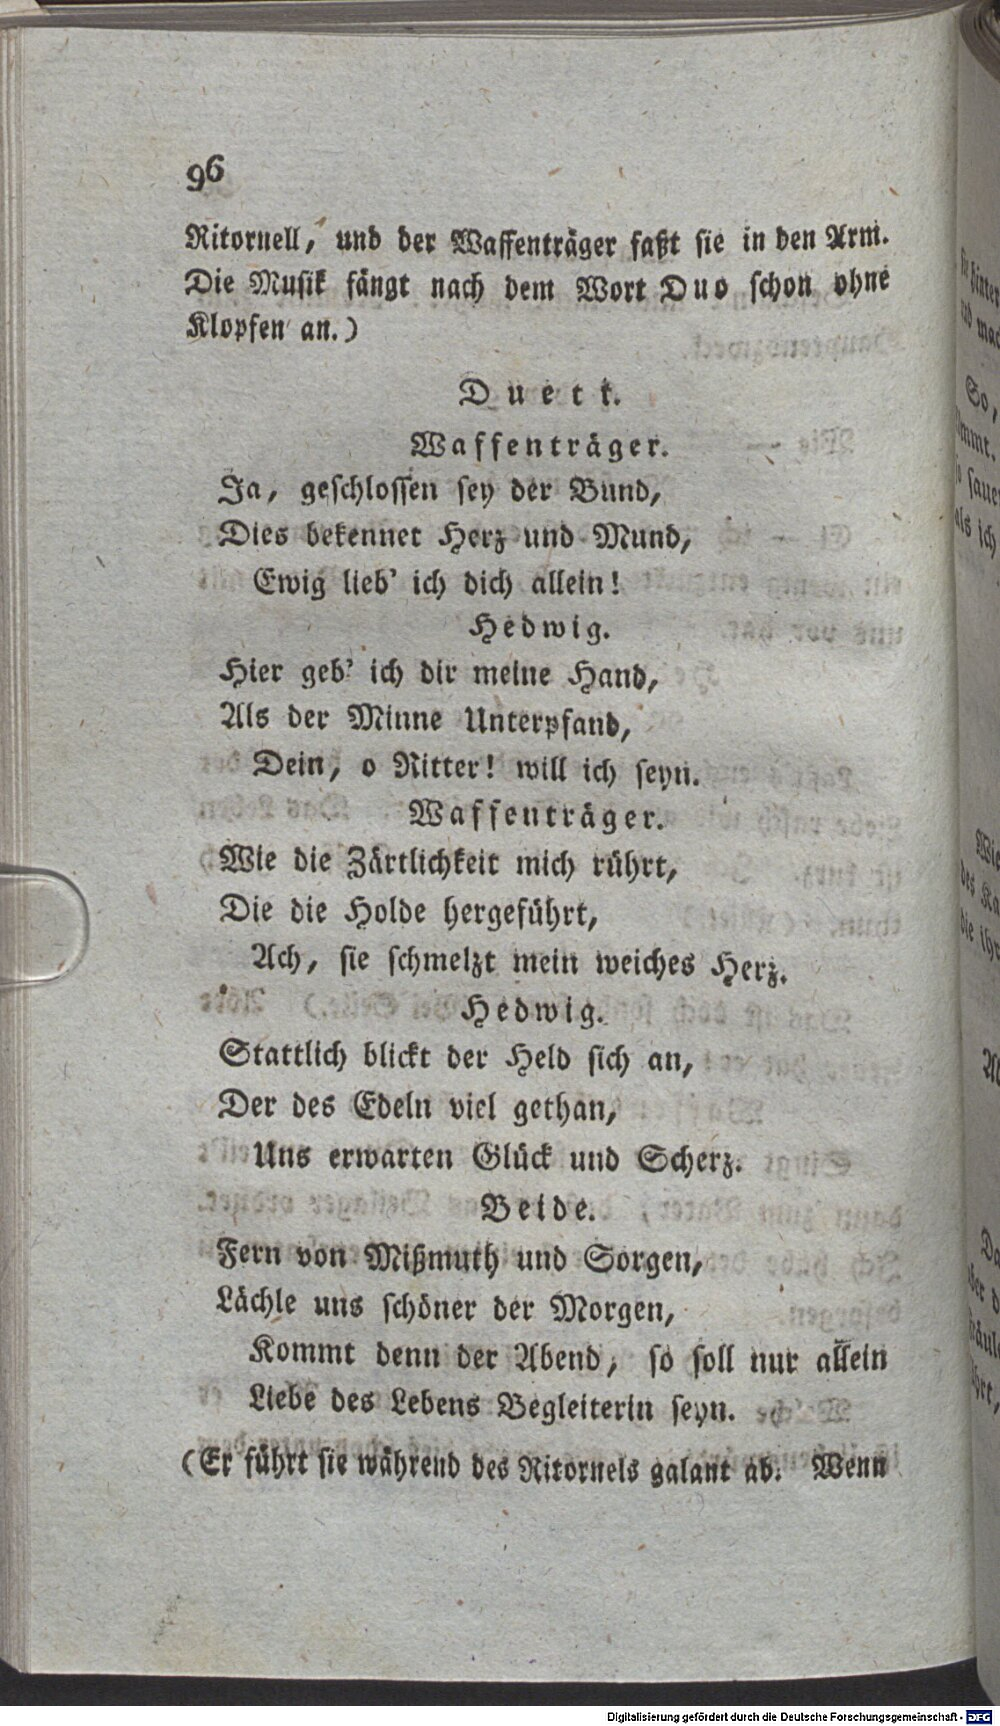 96
Ritornell, und der Waffenträger faßt sie in den Arm.
Die Musik fängt nach dem Wort Duo schon ohne
Klopfen an.)
Duett.
Waffenträger.
Ja, geschlossen sey der Bund,
Dies bekennet Herz und Mund,
Ewig lieb' ich dich allein!
Hedwig.
Hier geb' ich dir meine Hand,
Als der Minne Unterpfand,
Dein, o Ritter! will ich seyn.
Waffenträger.
Wie die Zärtlichkeit mich rührt,
Die die Holde hergeführt,
Ach, sie schmelzt mein weiches Herz.
Hedwig.
Stattlich blickt der Held sich an,
Der des Edeln viel gethan,
Uns erwarten Glück und Scherz.
Beide.
Fern von Mißmuth und Sorgen,
Lächle uns schöner der Morgen,
Kommt denn der Abend, so soll nur allein
Liebe des Lebens Begleiterin seyn.
(Er führt sie während des Ritornels galant ab. Wenn
Digitalisierung gefördert durch die Deutsche Forschungsgemeinschaft - DFG